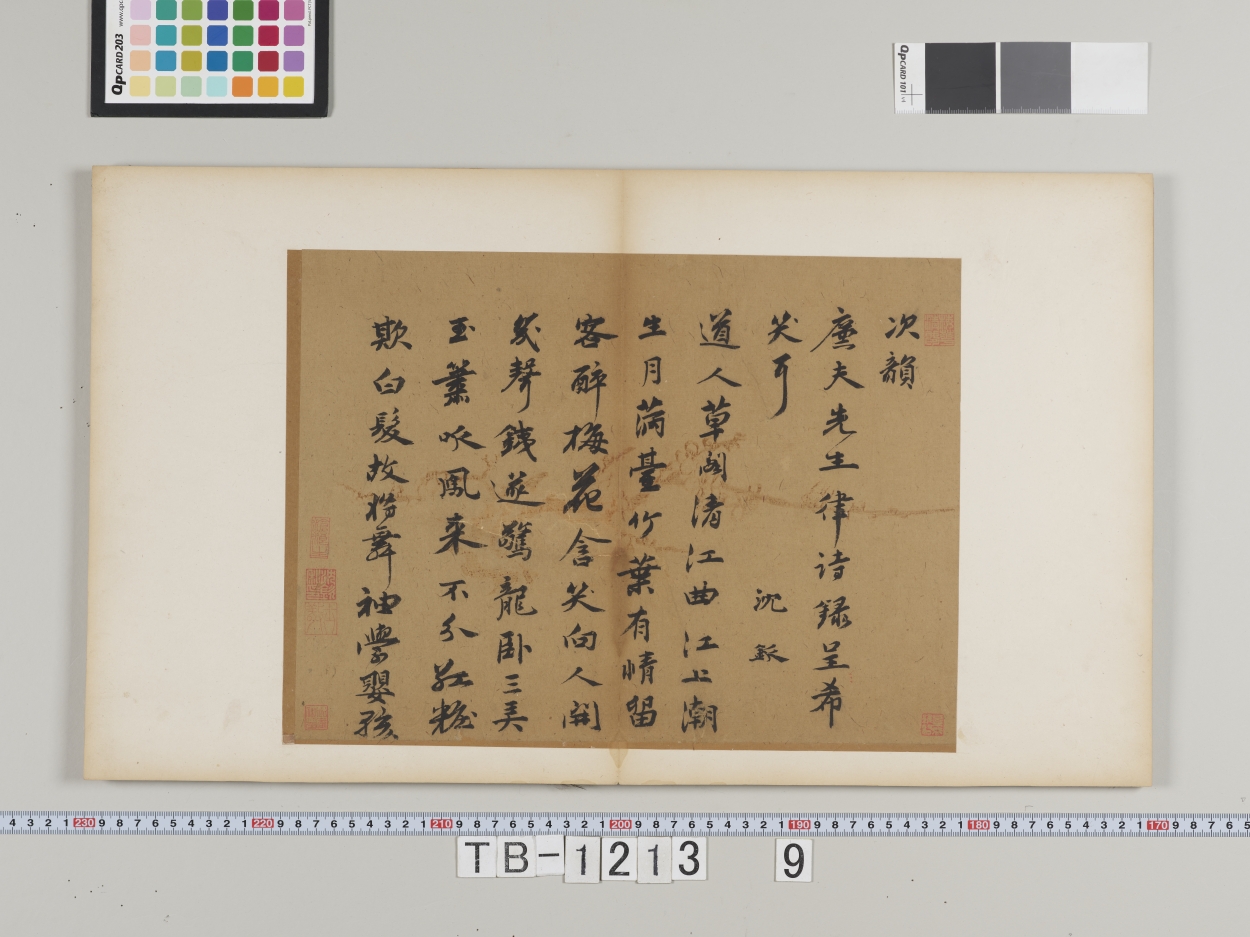 次韻
廉夫先生律诗録呈希
笑耳
沈鉌
道人草閣清江曲江上潮
生月满臺竹葉有情留
客醉梅花含笑向人開
幾聲鐵邃驚龍卧三弄
玉簫吹鳳来不分紅粧
欺白髮故將舞袖學嬰孩
QPCARD 203
QPCARD 101 v4
4 3 2 1 230 9 8 7 6 5 4 3 2 1 220 9 8 7 6 5 4 3 2 1 210 9 8 7 6 5 4 3 2 1 200 9 8 7 6 5 4 3 2 1 190 9 8 7 6 5 4 3 2 1 180 9 8 7 6 5 4 3 2 1 170 9 8 7 6 5
TB-1213 9